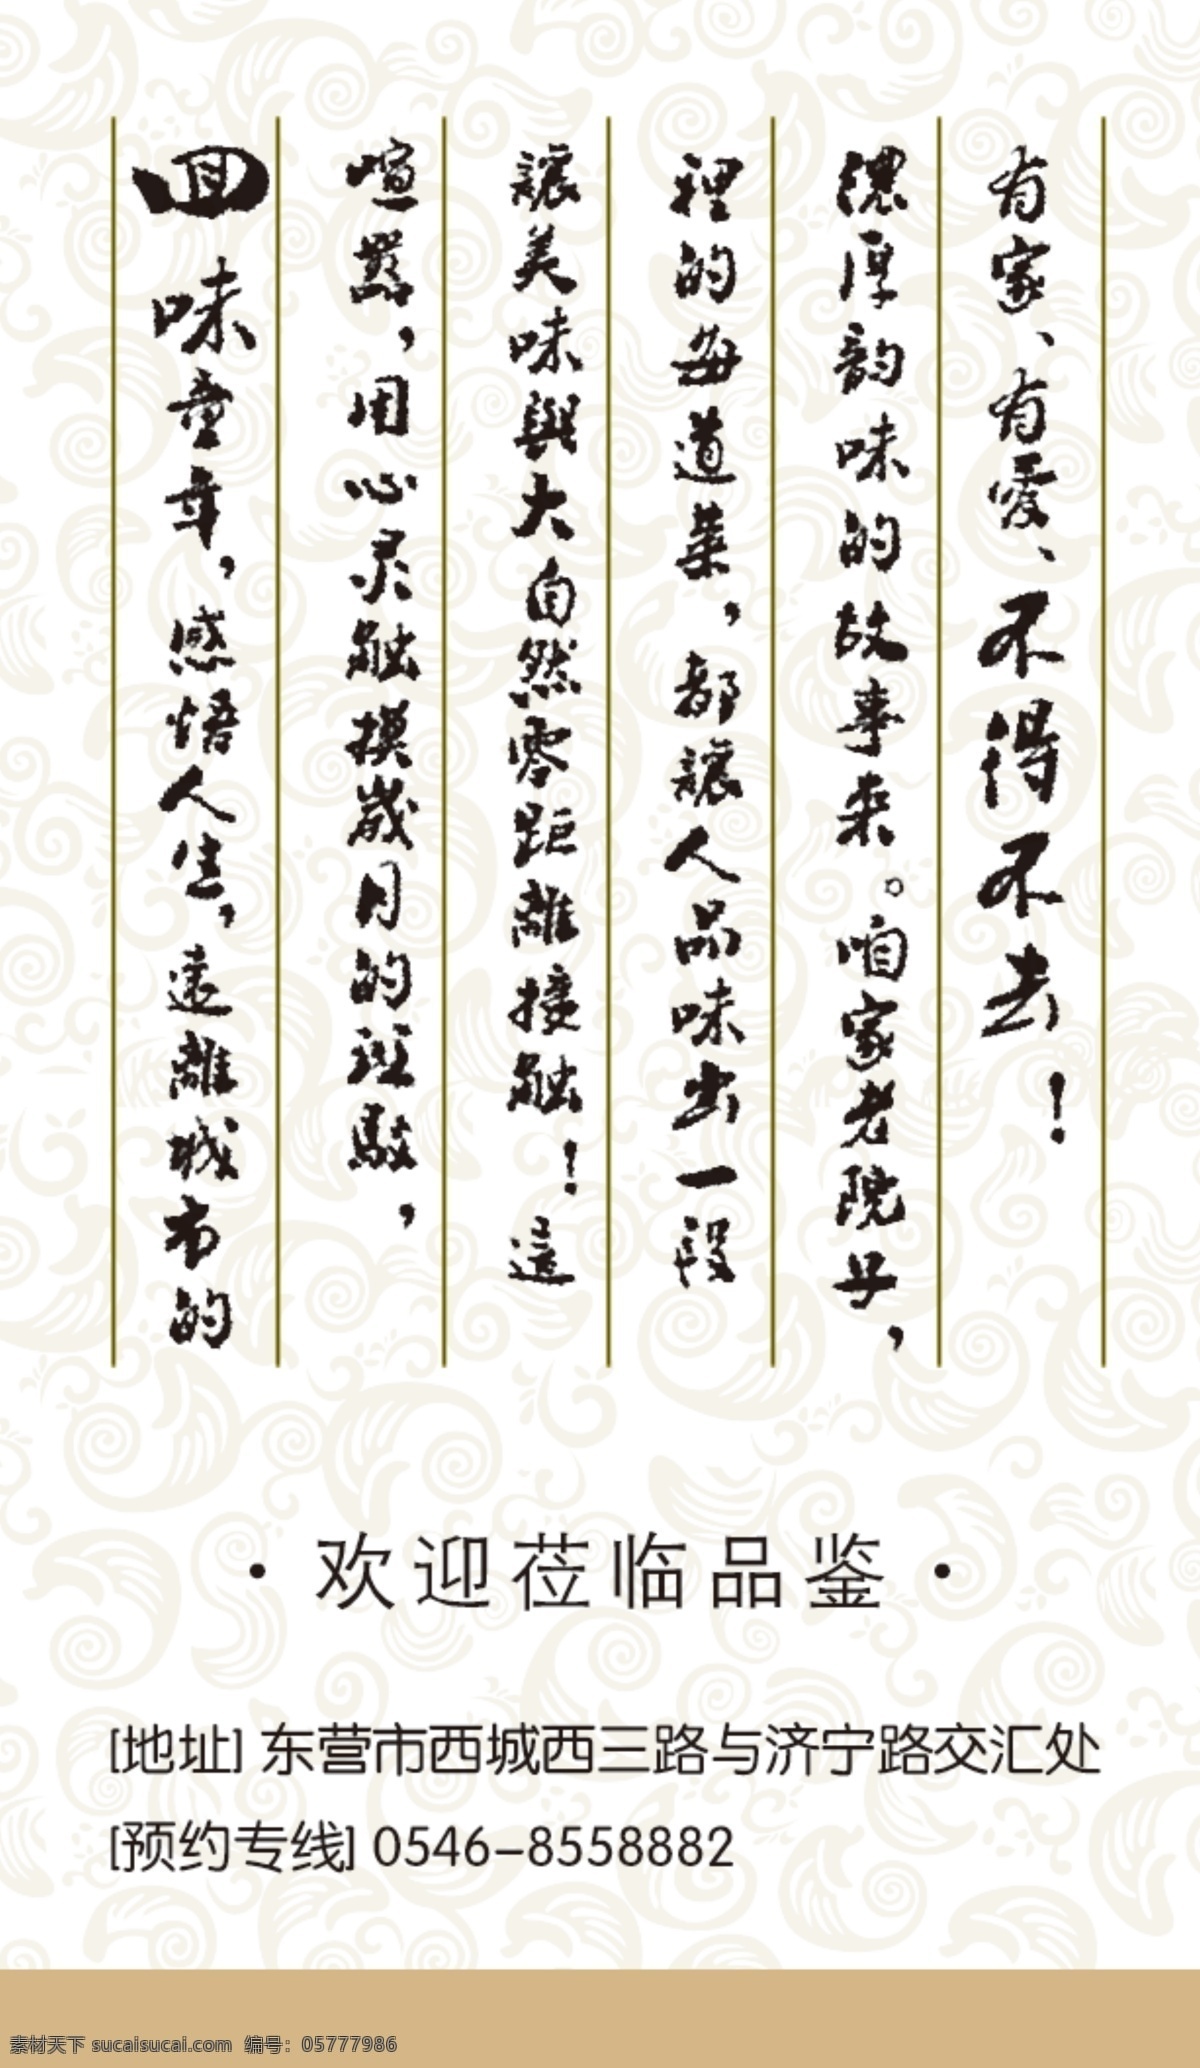 回味童年，感悟人生，遠離城市的
喧囂，用心灵触摸歲月的斑駁，
讓美味與大自然零距離接触！這
裡的每道菜，都讓人品味出一段
濃厚韵味的故事来。咱家老院子，
有家、有愛、不得不去！
·欢迎莅临品鉴·
[地址] 东营市西城西三路与济宁路交汇处
[预约专线] 0546-8558882
素材天下 sucaisucai.com 编号：05777986